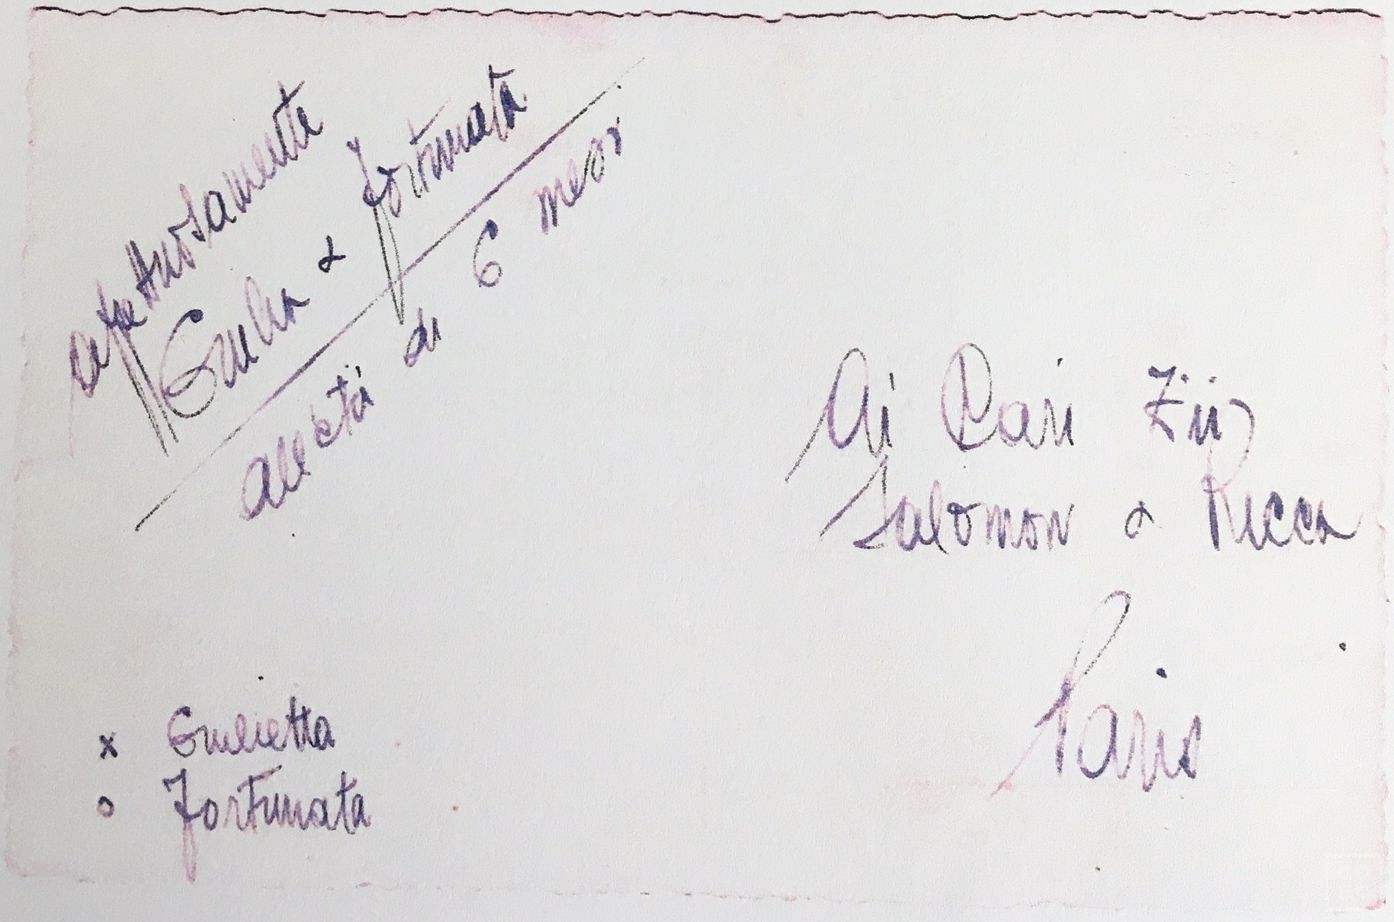 affettuosamente
Giulia & Fortunata
all età di 6 mesi
Ai Cari Zii
Salomon & Ricca
Paris
x Giulietta
o Fortunata